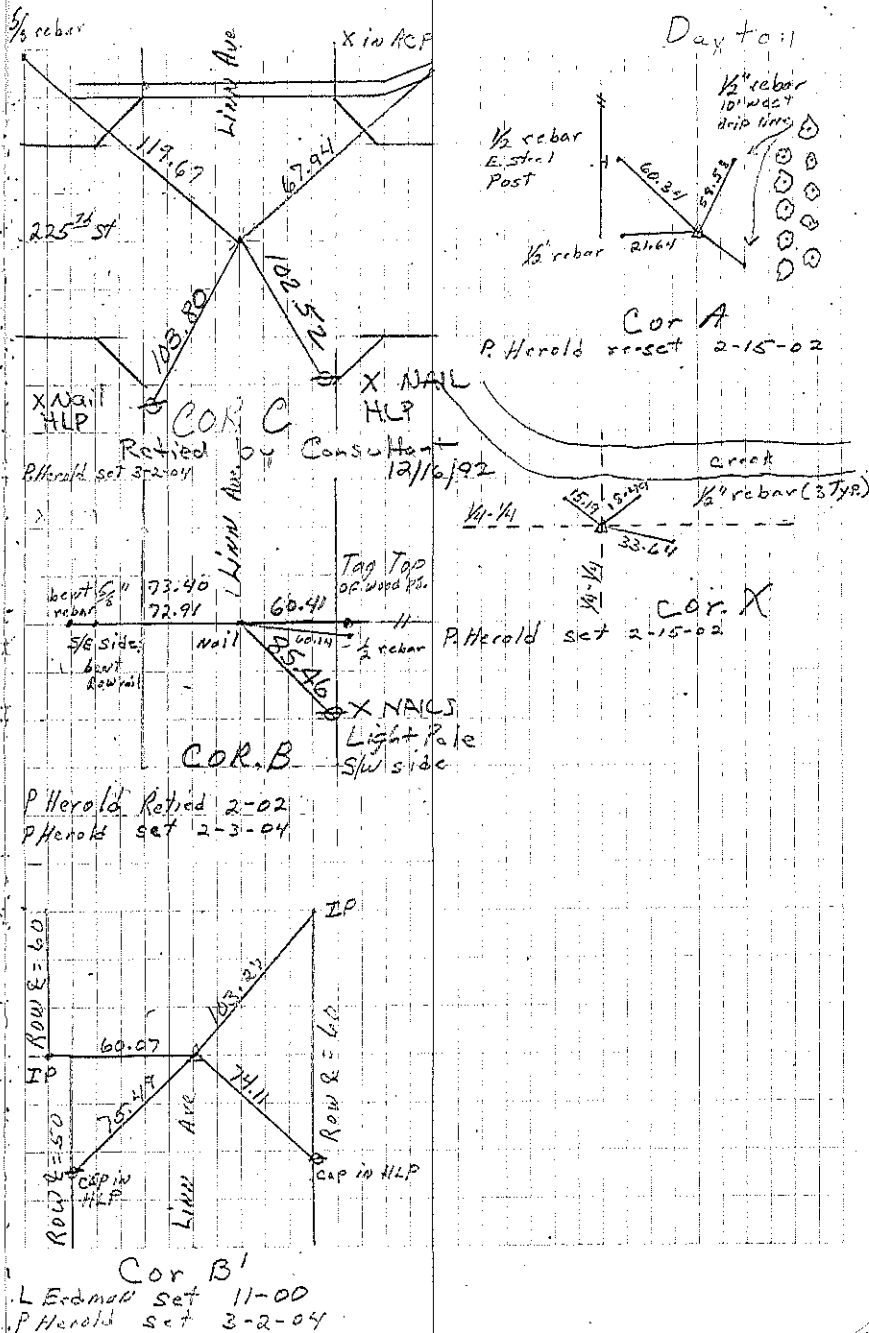 5/8 rebar
X in ACP
Linn Ave
119.67
67.94
225th St
103.80
102.52
X Nail
HLP
X NAIL
HLP
COR C
Retied by Consultant
12/16/92
P. Herold set 3-2-04
Linn Ave
bent 5/8"
rebar
73.40
72.91
60.41
Tag Top
of wood
S/E side
bent
Nail
60.14
1/2 rebar
85.46
X NAILS
Light Pole
S/W side
COR. B
P Herold Retied 2-02
P Herold set 2-3-04
IP
ROW & = 60
103.27
60.07
IP
75.49
74.11
ROW & = 60
Linn Ave
ROW & = 50
cap in
HLP
cap in HLP
Cor B'
L Erdman set 11-00
P Herold set 3-2-04
1/2" rebar
10' west
drip line
1/2 rebar
E. steel
Post
60.34
59.53
1/2" rebar
21.64
Cor A
P. Herold re-set 2-15-02
creek
15.19
1/2" rebar (3 Typ.)
1/4-1/4
33.64
1/4-1/4
Cor. X
P. Herold set 2-15-02